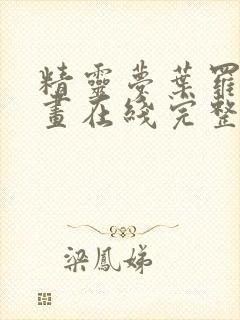 精靈夢葉羅
畫在綫完整
梁鳳娣